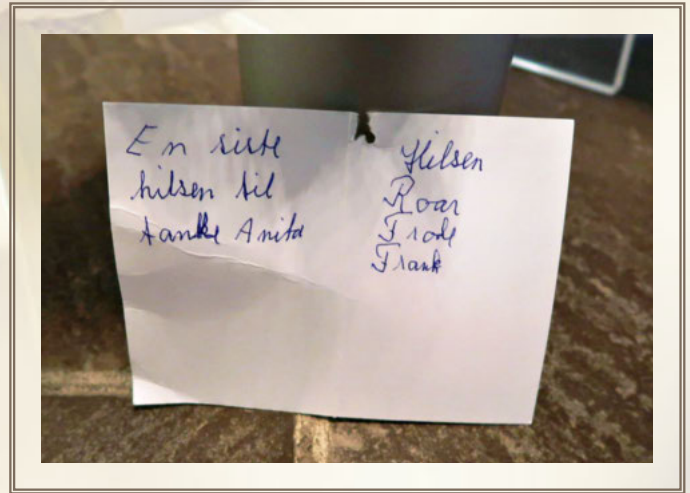 En siste
hilsen til
tanke Anita
Hilsen
Roar
Frode
Frank